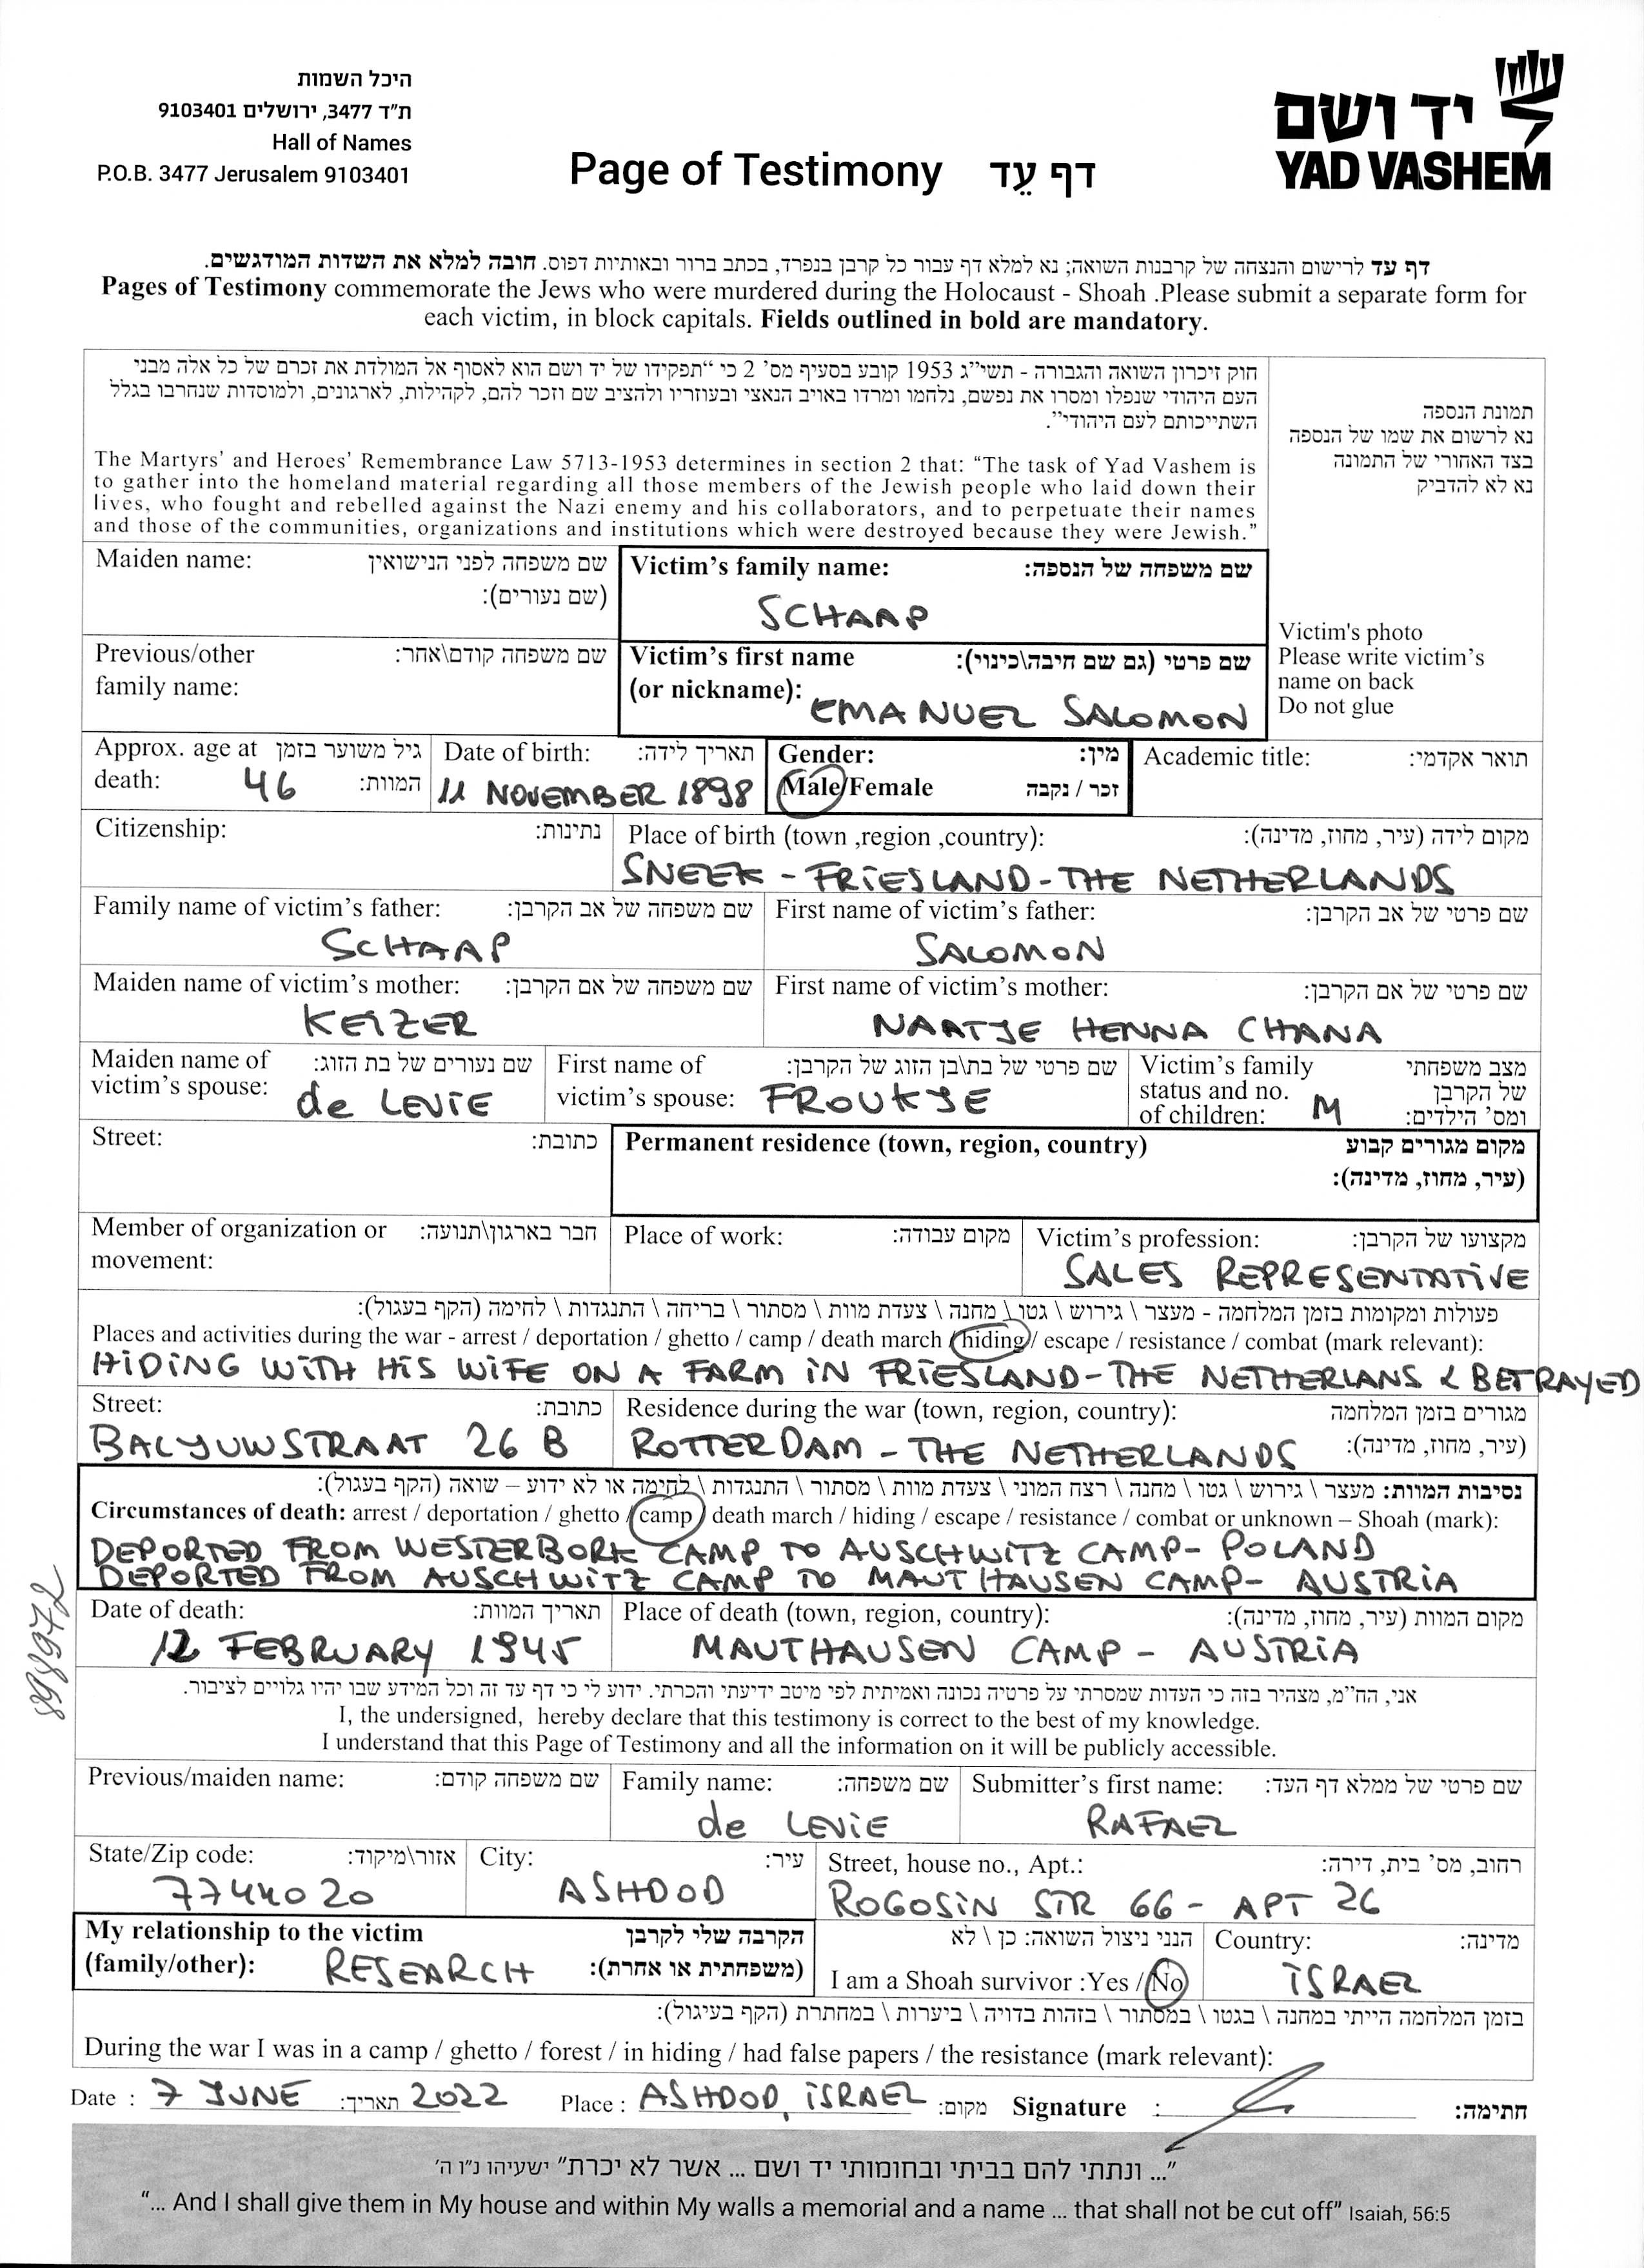 היכל השמות
ת"ד 3477, ירושלים 9103401
Hall of Names
P.O.B. 3477 Jerusalem 9103401
Page of Testimony דף עֵד
יד ושם
YAD VASHEM
דף עד לרישום והנצחה של קרבנות השואה; נא למלא דף עבור כל קרבן בנפרד, בכתב ברור ובאותיות דפוס. חובה למלא את השדות המודגשים.
Pages of Testimony commemorate the Jews who were murdered during the Holocaust - Shoah .Please submit a separate form for
each victim, in block capitals. Fields outlined in bold are mandatory.
חוק זיכרון השואה והגבורה - תשי"ג 1953 קובע בסעיף מס' 2 כי "תפקידו של יד ושם הוא לאסוף אל המולדת את זכרם של כל אלה מבני
העם היהודי שנפלו ומסרו את נפשם, נלחמו ומרדו באויב הנאצי ובעוזריו ולהציב שם וזכר להם, לקהילות, לארגונים, ולמוסדות שנחרבו בגלל
השתייכותם לעם היהודי".
The Martyrs' and Heroes' Remembrance Law 5713-1953 determines in section 2 that: "The task of Yad Vashem is
to gather into the homeland material regarding all those members of the Jewish people who laid down their
lives, who fought and rebelled against the Nazi enemy and his collaborators, and to perpetuate their names
and those of the communities, organizations and institutions which were destroyed because they were Jewish."
תמונת הנספה
נא לרשום את שמו של הנספה
בצד האחורי של התמונה
נא לא להדביק
Victim's photo
Please write victim's
name on back
Do not glue
Maiden name: שם משפחה לפני הנישואין
(שם נעורים):
Victim's family name: שם משפחה של הנספה:
SCHAAP
Previous/other שם משפחה קודם\אחר:
family name:
Victim's first name שם פרטי (גם שם חיבה\כינוי):
(or nickname): EMANUEL SALOMON
Approx. age at גיל משוער בזמן
death: 46 המוות:
Date of birth: תאריך לידה:
11 NOVEMBER 1898
Gender: מין:
Male/Female זכר / נקבה
Academic title: תואר אקדמי:
Citizenship: נתינות:
Place of birth (town ,region ,country): מקום לידה (עיר, מחוז, מדינה):
SNEEK - FRIESLAND - THE NETHERLANDS
Family name of victim's father: שם משפחה של אב הקרבן:
SCHAAP
First name of victim's father: שם פרטי של אב הקרבן:
SALOMON
Maiden name of victim's mother: שם משפחה של אם הקרבן:
KEIZER
First name of victim's mother: שם פרטי של אם הקרבן:
NAATJE HENNA CHANA
Maiden name of שם נעורים של בת הזוג:
victim's spouse: de LEVIE
First name of שם פרטי של בת\בן הזוג של הקרבן:
victim's spouse: FROUKJE
Victim's family מצב משפחתי
status and no. של הקרבן
of children: M ומס' הילדים:
Street: כתובת:
Permanent residence (town, region, country) מקום מגורים קבוע
(עיר, מחוז, מדינה):
Member of organization or חבר בארגון\תנועה:
movement:
Place of work: מקום עבודה:
Victim's profession: מקצועו של הקרבן:
SALES REPRESENTATIVE
פעולות ומקומות בזמן המלחמה - מעצר \ גירוש \ גטו \ מחנה \ צעדת מוות \ מסתור \ בריחה \ התנגדות \ לחימה (הקף בעגול):
Places and activities during the war - arrest / deportation / ghetto / camp / death march / hiding / escape / resistance / combat (mark relevant):
HIDING WITH HIS WIFE ON A FARM IN FRIESLAND - THE NETHERLANS & BETRAYED
Street: כתובת:
BALJUWSTRAAT 26 B
Residence during the war (town, region, country): מגורים בזמן המלחמה
ROTTERDAM - THE NETHERLANDS (עיר, מחוז, מדינה):
נסיבות המוות: מעצר \ גירוש \ גטו \ מחנה \ רצח המוני \ צעדת מוות \ מסתור \ התנגדות \ לחימה או לא ידוע – שואה (הקף בעגול):
Circumstances of death: arrest / deportation / ghetto / camp / death march / hiding / escape / resistance / combat or unknown – Shoah (mark):
DEPORTED FROM WESTERBORK CAMP TO AUSCHWITZ CAMP - POLAND
DEPORTED FROM AUSCHWITZ CAMP TO MAUTHAUSEN CAMP - AUSTRIA
Date of death: תאריך המוות:
12 FEBRUARY 1945
Place of death (town, region, country): מקום המוות (עיר, מחוז, מדינה):
MAUTHAUSEN CAMP - AUSTRIA
898972
אני, הח"מ, מצהיר בזה כי העדות שמסרתי על פרטיה נכונה ואמיתית לפי מיטב ידיעתי והכרתי. ידוע לי כי דף עד זה וכל המידע שבו יהיו גלויים לציבור.
I, the undersigned, hereby declare that this testimony is correct to the best of my knowledge.
I understand that this Page of Testimony and all the information on it will be publicly accessible.
Previous/maiden name: שם משפחה קודם:
Family name: שם משפחה:
de LEVIE
Submitter's first name: שם פרטי של ממלא דף העד:
RAFAEL
State/Zip code: אזור\מיקוד:
7744020
City: עיר:
ASHDOD
Street, house no., Apt.: רחוב, מס' בית, דירה:
ROGOSIN STR 66 - APT 26
My relationship to the victim הקרבה שלי לקרבן
(family/other): RESEARCH (משפחתית או אחרת):
הנני ניצול השואה: כן \ לא
I am a Shoah survivor :Yes / No
Country: מדינה:
ISRAEL
בזמן המלחמה הייתי במחנה \ בגטו \ במסתור \ בזהות בדויה \ ביערות \ במחתרת (הקף בעיגול):
During the war I was in a camp / ghetto / forest / in hiding / had false papers / the resistance (mark relevant):
Date : 7 JUNE תאריך: 2022 Place : ASHDOD, ISRAEL מקום: Signature : חתימה:
"... ונתתי להם בביתי ובחומותי יד ושם ... אשר לא יכרת" ישעיהו נ"ו ה'
"... And I shall give them in My house and within My walls a memorial and a name ... that shall not be cut off" Isaiah, 56:5